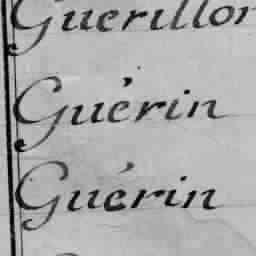 Guerillon
Guérin
Guérin